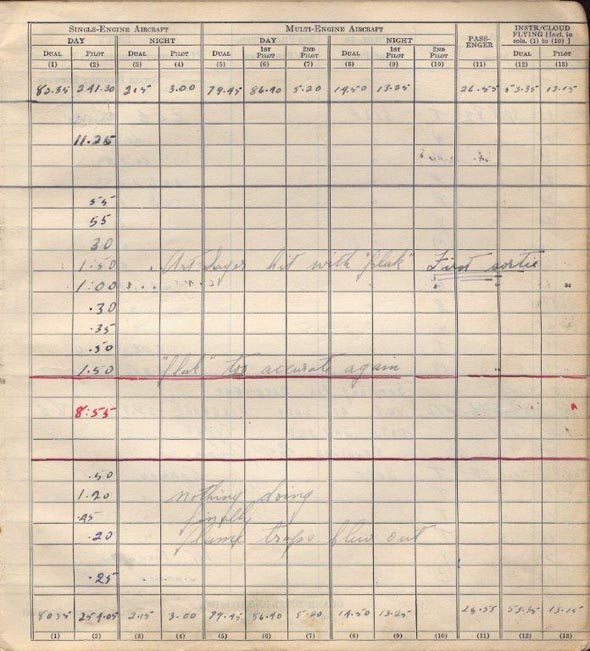 SINGLE-ENGINE AIRCRAFT MULTI-ENGINE AIRCRAFT PASS-ENGER INSTR/CLOUD FLYING [Incl. in cols. (1) to (10) ]
DAY NIGHT DAY NIGHT
DUAL PILOT DUAL PILOT DUAL 1ST PILOT 2ND PILOT DUAL 1ST PILOT 2ND PILOT DUAL PILOT
(1) (2) (3) (4) (5) (6) (7) (8) (9) (10) (11) (12) (13)
80.35 241.30 2.15 3.00 79.45 86.40 5.20 14.50 13.25 26.55 53.35 13.15
11.25
55
55
30
1.50 hit with "flak" First sortie
1:00
.30
.35
.50
1.50 "flak" too accurate again
8:55
.50
1.20 nothing doing
.45 finally
.20 flame traps blew out
.25
80.35 254.05 2.15 3.00 79.45 86.40 5.20 14.50 13.25 53.35 13.15
(1) (2) (3) (4) (5) (6) (7) (8) (9) (10) (11) (12) (13)